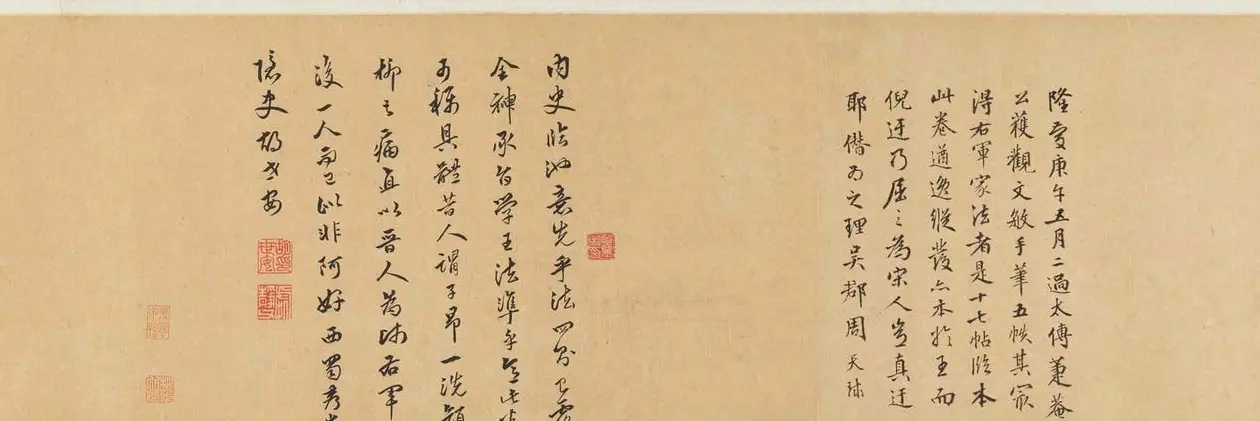 隆慶庚午五月二過太傅菴
公獲觀文敏手筆五帙其最
得右軍家法者是十七帖臨本
此卷遒逸縱發亦本於王而
倪迂乃屈之為宋人豈真迂
耶僭為之理吳郡周天球
內史臨池意先乎法
全神承旨學王法準乎意此
可稱具體昔人謂子昂一洗顏
柳之病直以晉人為師右軍
後一人而已此非阿好西蜀
胡世安